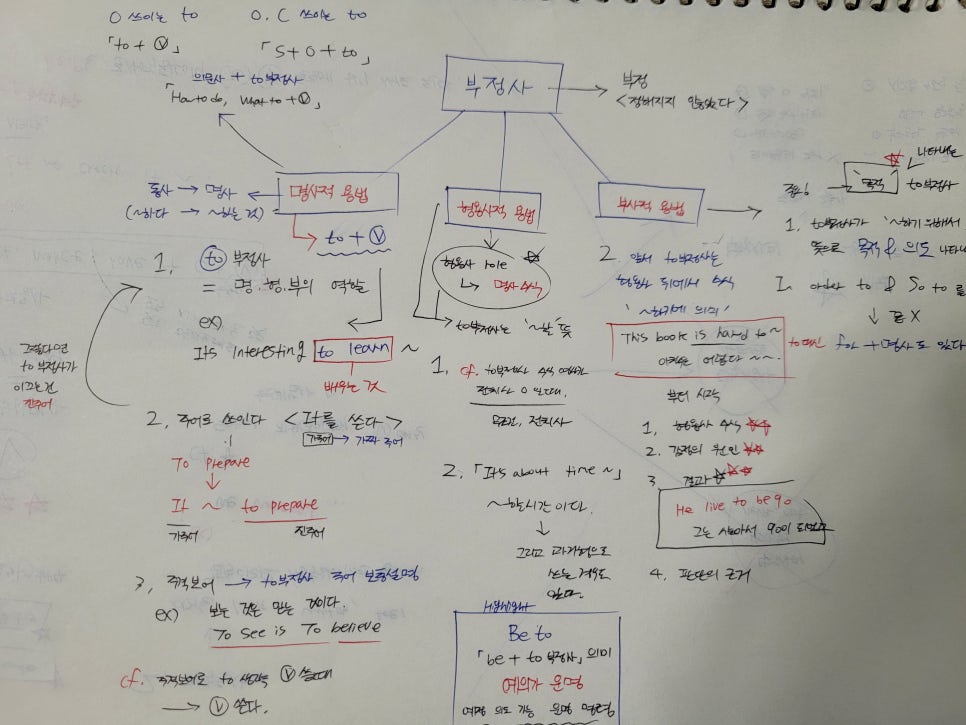 O 쓰이는 to
O.C 쓰이는 to
「to + Ⓥ」
「S + O + to」
의문사 + to부정사
「How to do, what to + Ⓥ」
부정사
부정
<정해지지 않았다>
동사 → 명사
(~하다 → ~하는 것)
명사적 용법
to + Ⓥ
1, to 부정사
= 명.형.부의 역할
ex)
It's interesting to learn ~
배우는 것
그렇다면
to 부정사가
이끄는건
진주어
2, 주어로 쓰인다 <It를 쓴다>
가주어 → 가짜 주어
To prepare
It ~ to prepare
가주어
진주어
3, 주격보어 → to부정사 주어 보충설명
ex) 보는 것은 믿는 것이다.
To see is To believe
cf. 주격보어로 to 생략 Ⓥ 쓸때
→ Ⓥ 쓴다.
형용사적 용법
형용사 role
↳ 명사 수식
to부정사는 '~할' 뜻
1, cf. to부정사 수식
전치사 0
전치사
2. 「It's about time ~」
~할시간이다.
↓
그리고 과거형으로
쓰는 경우도
있다.
Be to
「be + to 부정사」 의미
예의가 운명
예정 의도 가능 운명 명령
부사적 용법
2. 앞서 to부정사는
형용사 뒤에서 수식
'~하기에 의미'
This book is hard to ~
어렵다 ~~.
부터 시작
1, 형용사 수식
2. 감정의 원인
3, 결과
He live to be 90
그는 살아서 90이 되었다
4. 판단의 근거
중요! 목적 나타내는 to부정사
1. to부정사가 '~하기 위해서'
뜻으로 목적 & 의도
In order to & So to
↓
to대신 for + 명사도 있다